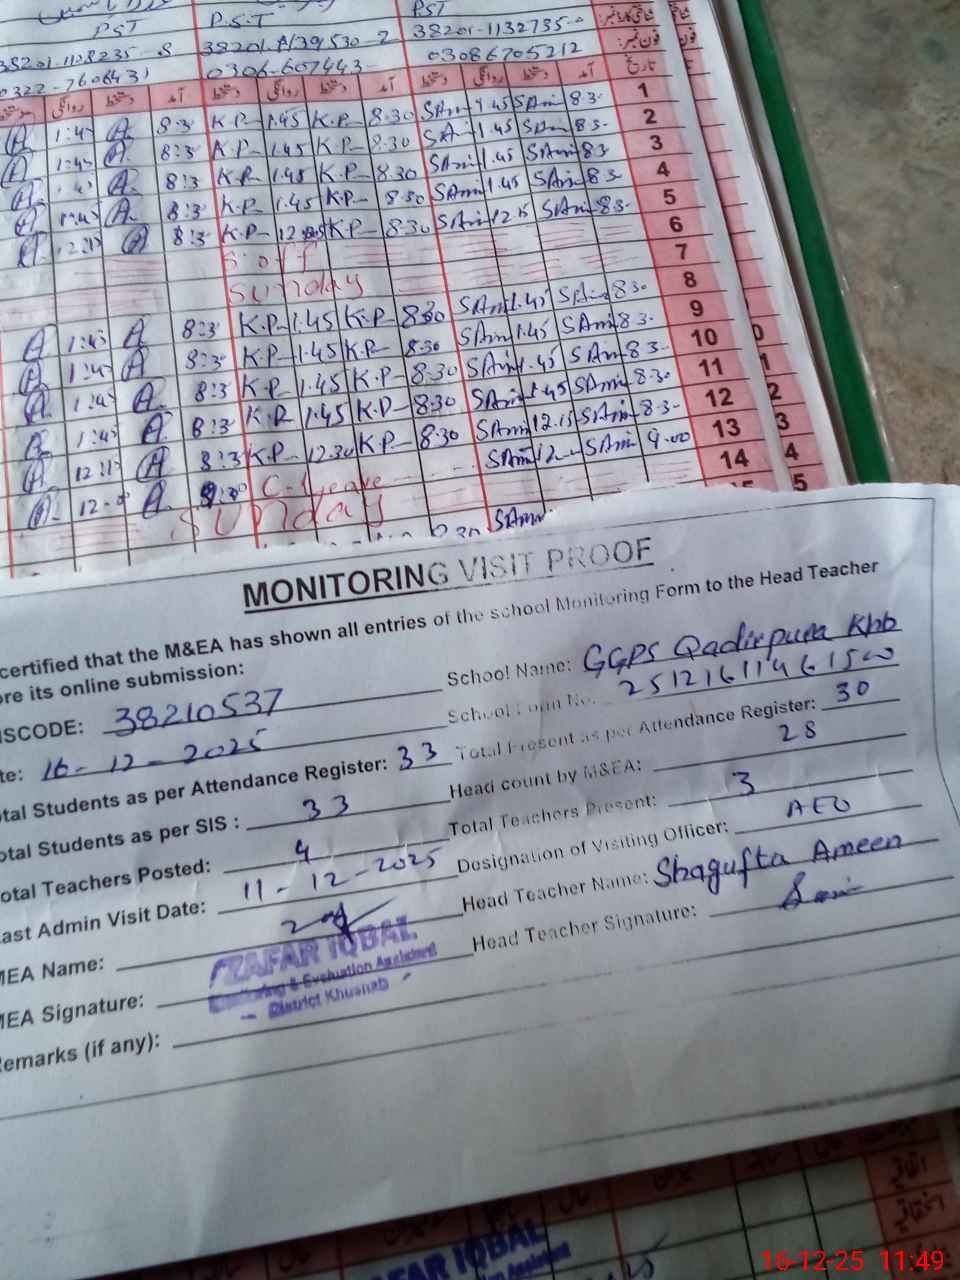 PST P.S.T PST
38201-1108235-8 38201- 38201-1132735-0 شناختی کارڈ نمبر:
0306-607443- 03086705212 فون نمبر:
دستخط روانگی دستخط آمد دستخط روانگی دستخط آمد دستخط روانگی دستخط آمد تاریخ
A 1:45 A 8:3 K.P 1.45 K.P 8.30 SAmi 1.45 SAmi 8.3- 1
A 1:45 A 8:3 K.P 1.45 K.P 8.30 SAmi 1.45 SAmi 8.3- 2
A 1:45 A 8:3 K.P 1.45 K.P 8.30 SAmi 1.45 SAmi 8.3 3
A 1:45 A 8:3 K.P 1.45 K.P 8.30 SAmi 1.45 SAmi 8.3- 4
A 12:15 A 8:3 K.P 12 K.P 8.30 SAmi 12.15 SAmi 8.3- 5
S. off 6
Sunday 7
A 1:45 A 8:3 K.P 1.45 K.P 8.30 SAmi 1.45 SAmi 8.30 8
A 1:45 A 8:3 K.P 1.45 K.P 8.30 SAmi 1.45 SAmi 8.3- 9
A 1:45 A 8:3 K.P 1.45 K.P 8.30 SAmi 1.45 SAmi 8.3- 10
A 1:45 A 8:3 K.P 1.45 K.P 8.30 SAmi 1.45 SAmi 8.30 11
A 12:15 A 8:3 K.P 12.30 K.P 8.30 SAmi 12.15 SAmi 8.3- 12
A 12-0 A 9:30 C-Leave SAmi 12- SAmi 9.00 13
Sunday 14
SAmi
MONITORING VISIT PROOF
certified that the M&EA has shown all entries of the school Monitoring Form to the Head Teacher
ore its online submission:
ISCODE: 38210537 School Name: GGPS Qadirpura Khb
te: 16-12-2025 School Form No. 2512161146150
otal Students as per Attendance Register: 33 Total Present as per Attendance Register: 30
otal Students as per SIS : 33 Head count by M&EA: 28
otal Teachers Posted: 4 Total Teachers Present: 3
ast Admin Visit Date: 11-12-2025 Designation of Visiting Officer: AEO
MEA Name: Head Teacher Name: Shagufta Ameen
ZAFAR IQBAL
Monitoring & Evaluation Assistant
District Khushab
MEA Signature: Head Teacher Signature:
Remarks (if any):
ZAFAR IQBAL
16-12-25 11:49